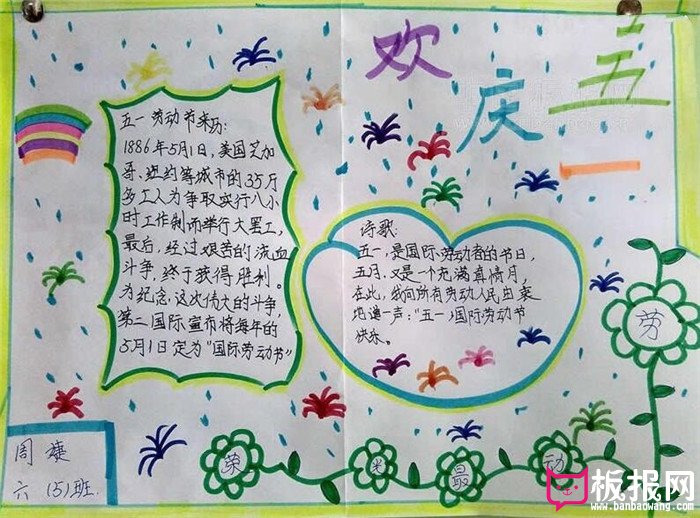 欢
庆
五
一
五一劳动节来历:
1886年5月1日,美国芝加
哥、纽约等城市的35万
多工人为争取实行八小
时工作制而举行大罢工,
最后,经过艰苦的流血
斗争,终于获得胜利。
为纪念这次伟大的斗争,
第二国际宣布将每年的
5月1日定为"国际劳动节"
诗歌:
五一,是国际劳动者的节日,
五月,又是一个充满真情月,
在此,我向所有劳动人民由衷
地道一声:"五一"国际劳动节
快乐。
劳
动
最
光
荣
周婕
六(5)班
板报网
www.banbaowang.com